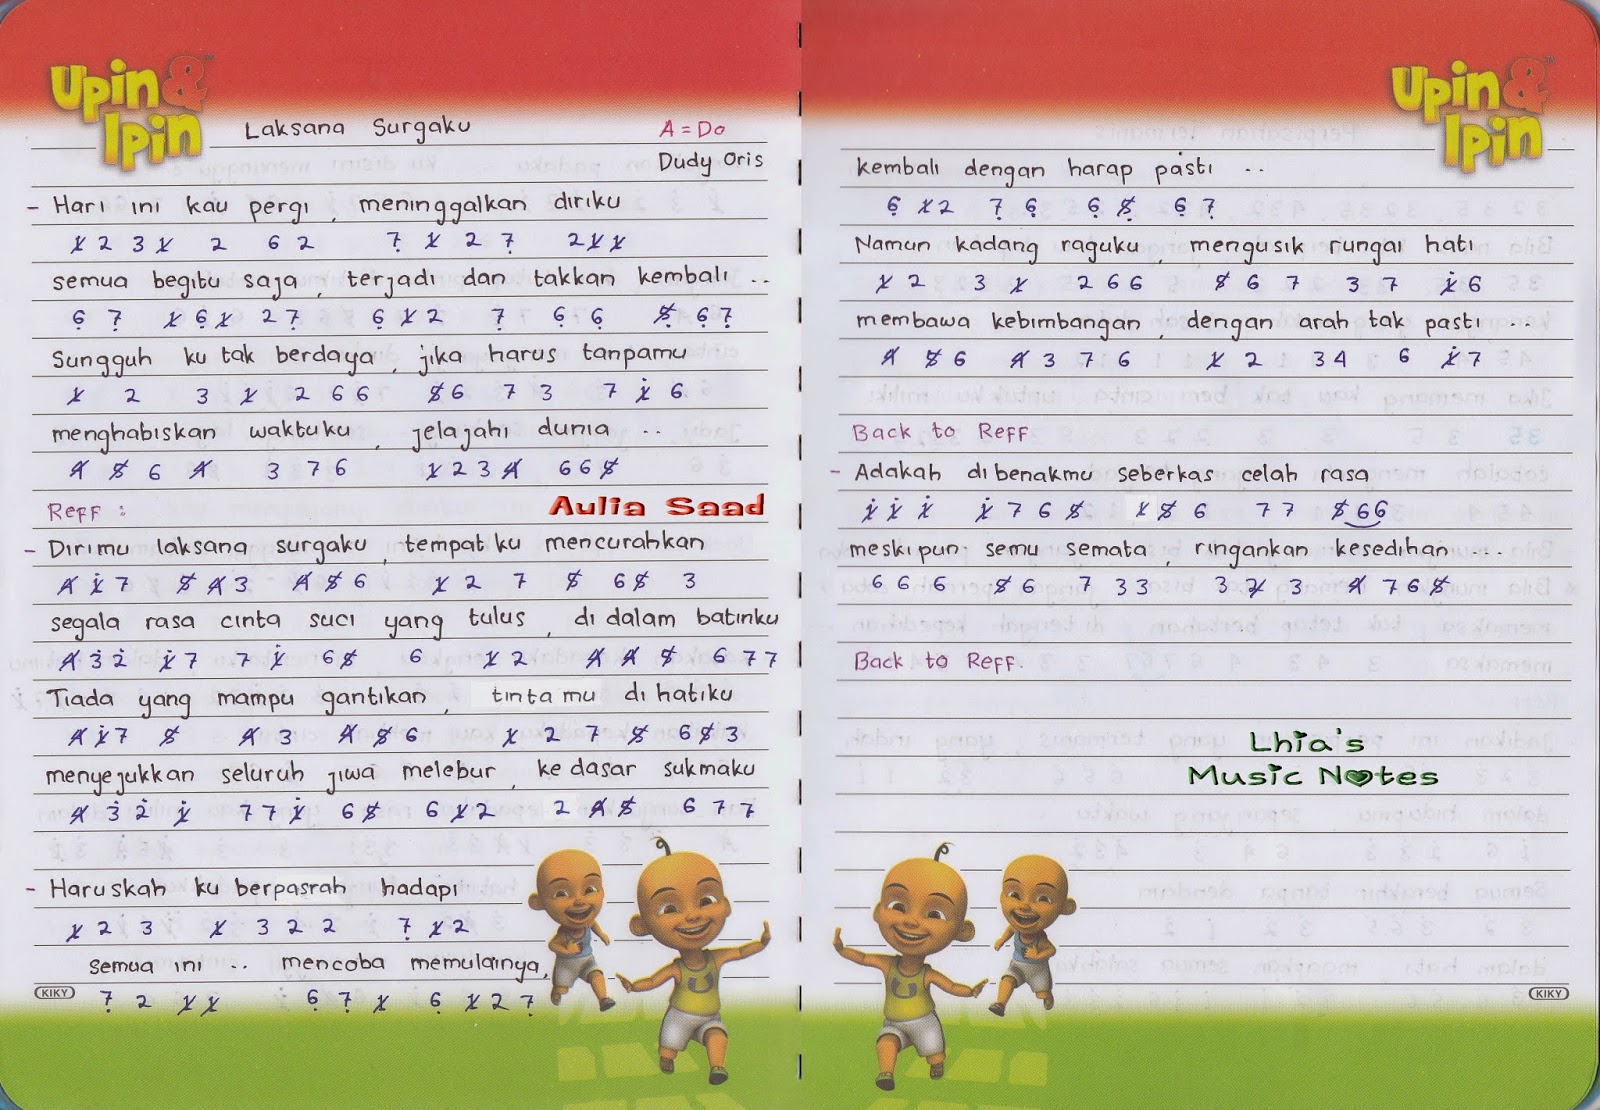 Upin &
Ipin
Laksana Surgaku
A = Do
Dudy Oris
- Hari ini kau pergi, meninggalkan diriku
1̸ 2 3 1̸ 2 6 2 7̣ 1̸ 2 7̣ 2 1̸ 1̸
semua begitu saja, terjadi dan takkan kembali ..
6̣ 7̣ 1̸ 6̣ 1̸ 2 7̣ 6̣ 1̸ 2 7̣ 6̣ 6̣ 5̸̣ 6̣ 7̣
Sungguh ku tak berdaya, jika harus tanpamu
1̸ 2 3 1̸ 2 6 6 5̸ 6 7 3 7 1̸̇ 6
menghabiskan waktuku, jelajahi dunia ..
4̸ 5̸ 6 4̸ 3 7 6 1̸ 2 3 4̸ 6 6 5̸
Reff :
Aulia Saad
- Dirimu laksana surgaku, tempatku mencurahkan
4̸ 1̸̇ 7 5̸ 4̸ 3 4̸ 5̸ 6 1̸ 2 7 5̸ 6 5̸ 3
segala rasa cinta suci yang tulus, di dalam batinku
4̸ 3̇ 2̇ 1̸̇ 7 7 1̸̇ 6 5̸ 6 1̸ 2 4̸ 4̸ 5̸ 6 7 7
Tiada yang mampu gantikan, tinta mu di hatiku
4̸ 1̸̇ 7 5̸ 4̸ 3 4̸ 5̸ 6 1̸ 2 7 5̸ 6 5̸ 3
menyejukkan seluruh jiwa melebur, ke dasar sukmaku
4̸ 3̇ 2̇ 1̸̇ 7 7 1̸̇ 6 5̸ 6 1̸ 2 2 4̸ 5̸ 6 7 7
- Haruskah ku berpasrah hadapi
1̸ 2 3 1̸ 3 2 2 7̣ 1̸ 2
semua ini .. mencoba memulainya,
7̣ 2 1̸ 1̸ 6̣ 7̣ 1̸ 6̣ 1̸ 2 7̣
KIKY
Upin &
Ipin
kembali dengan harap pasti ..
6̣ 1̸ 2 7̣ 6̣ 6̣ 5̸̣ 6̣ 7̣
Namun kadang raguku, mengusik rungai hati
1̸ 2 3 1̸ 2 6 6 5̸ 6 7 3 7 1̸̇ 6
membawa kebimbangan, dengan arah tak pasti ...
4̸ 5̸ 6 4̸ 3 7 6 1̸ 2 3 4 6 1̸̇ 7
Back to Reff
- Adakah dibenakmu seberkas celah rasa
1̸̇ 1̸̇ 1̸̇ 1̸̇ 7 6 5̸ 1̸ 5̸ 6 7 7 5̸ 6 6
meskipun semu semata, ringankan kesedihan ...
6 6 6 5̸ 6 7 3 3 3 2̸ 3 4̸ 7 6 5̸
Back to Reff.
Lhia's
Music Notes
KIKY